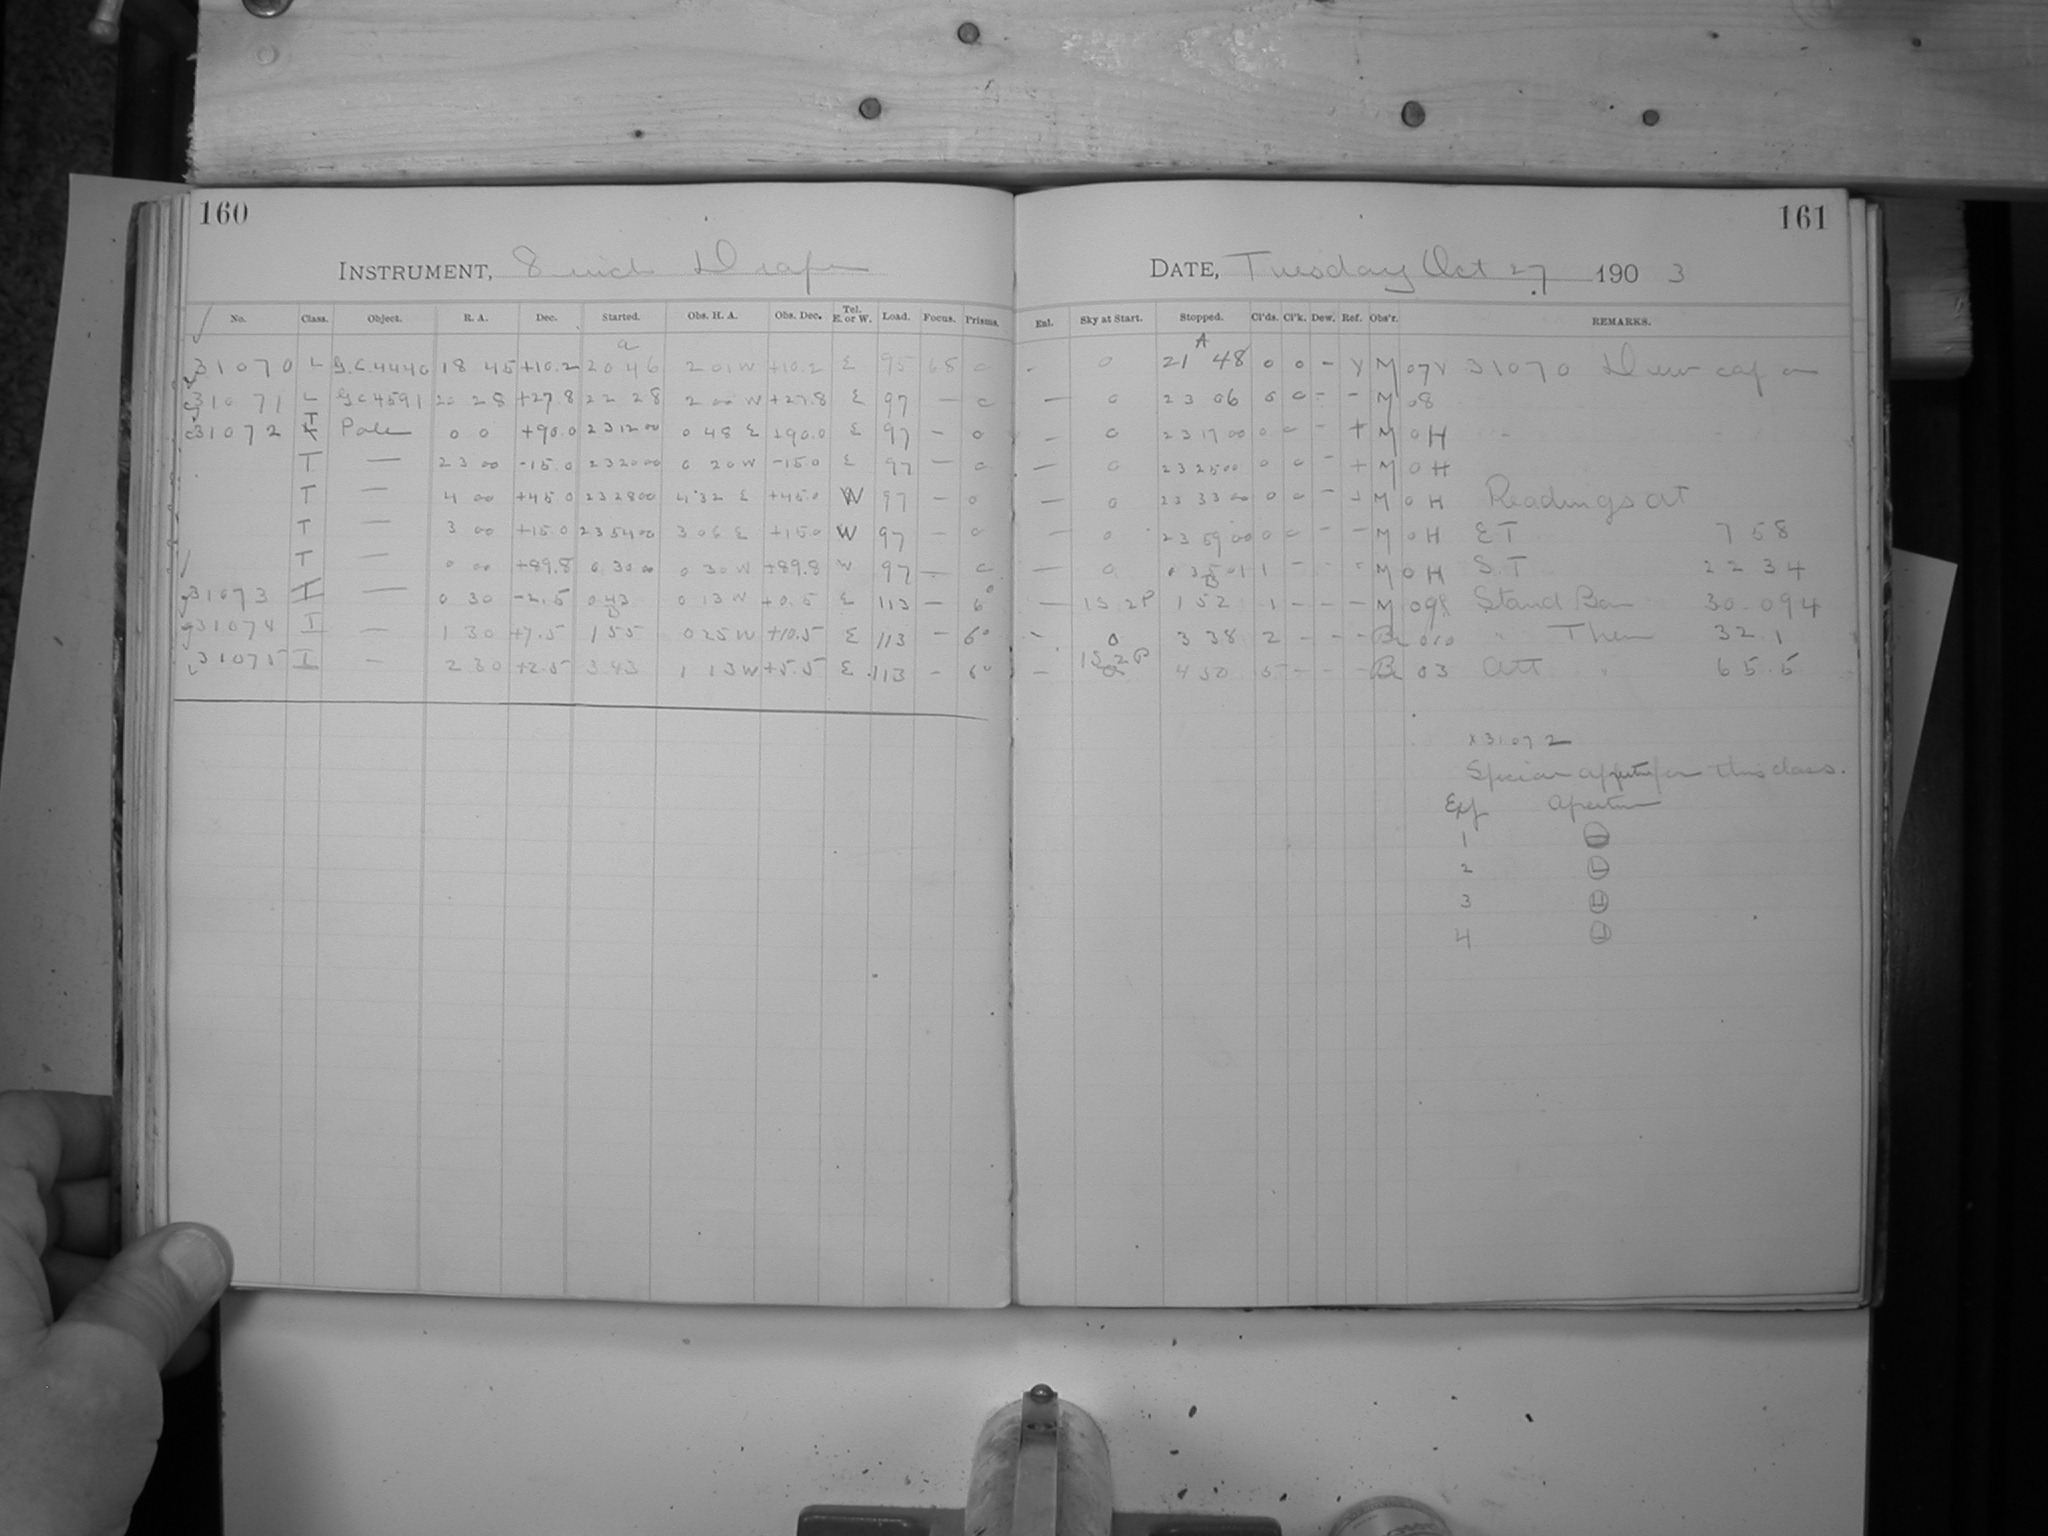 160
INSTRUMENT, 8 inch Draper
No. Class. Object. R. A. Dec. Started. Obs. H. A. Obs. Dec. Tel. E. or W. Load. Focus. Prisms.
a
31070 L G.C.4440 18 45 +10.2 20 46 2 01 W +10.2 E 95 68 0
31071 L G.C.4591 20 28 +27.8 22 28 2 00 W +27.8 E 97 — 0
31072 T Pole 0 0 +90.0 23 12 00 0 48 E +90.0 E 97 — 0
T — 23 00 -15.0 23 20 00 0 20 W -15.0 E 97 — 0
T — 4 00 +45.0 23 28 00 4 32 E +45.0 W 97 — 0
T — 3 00 +15.0 23 54 00 3 06 E +15.0 W 97 — 0
T — 0 00 +89.8 0 30 00 0 30 W +89.8 W 97 — 0
31073 I — 0 30 -2.5 0 43 0 13 W +0.5 E 113 — 6°
31074 I — 1 30 +7.5 1 55 0 25 W +10.5 E 113 — 6°
31075 I — 2 30 +2.5 3 43 1 13 W +5.5 E 113 — 6°
161
DATE, Tuesday Oct 27 1903
Enl. Sky at Start. Stopped. Cl'ds. Cl'k. Dew. Ref. Obs'r. REMARKS.
A
- 0 21 48 0 0 - Y M 07Y 31070 Dew cap on
— 0 23 06 0 0 - - M 08
— 0 23 17 00 0 0 - + M 0H
— 0 23 25 00 0 0 - + M 0H
— 0 23 33 00 0 0 - M 0H Readings at
— 0 23 59 00 0 0 - - M 0H E T 7 58
— 0 0 35 01 1 - - M 0H S.T 22 34
— 1S 2P 1 52 1 - - - M Stand Bar 30.094
- 0 3 38 2 - - - Br 010 " Ther 32.1
— 1S 2P 4 50 5 - - - Br 03 Att " 65.5
x 31072
Special aperture for this class.
Exp Aperture
1
2
3
4